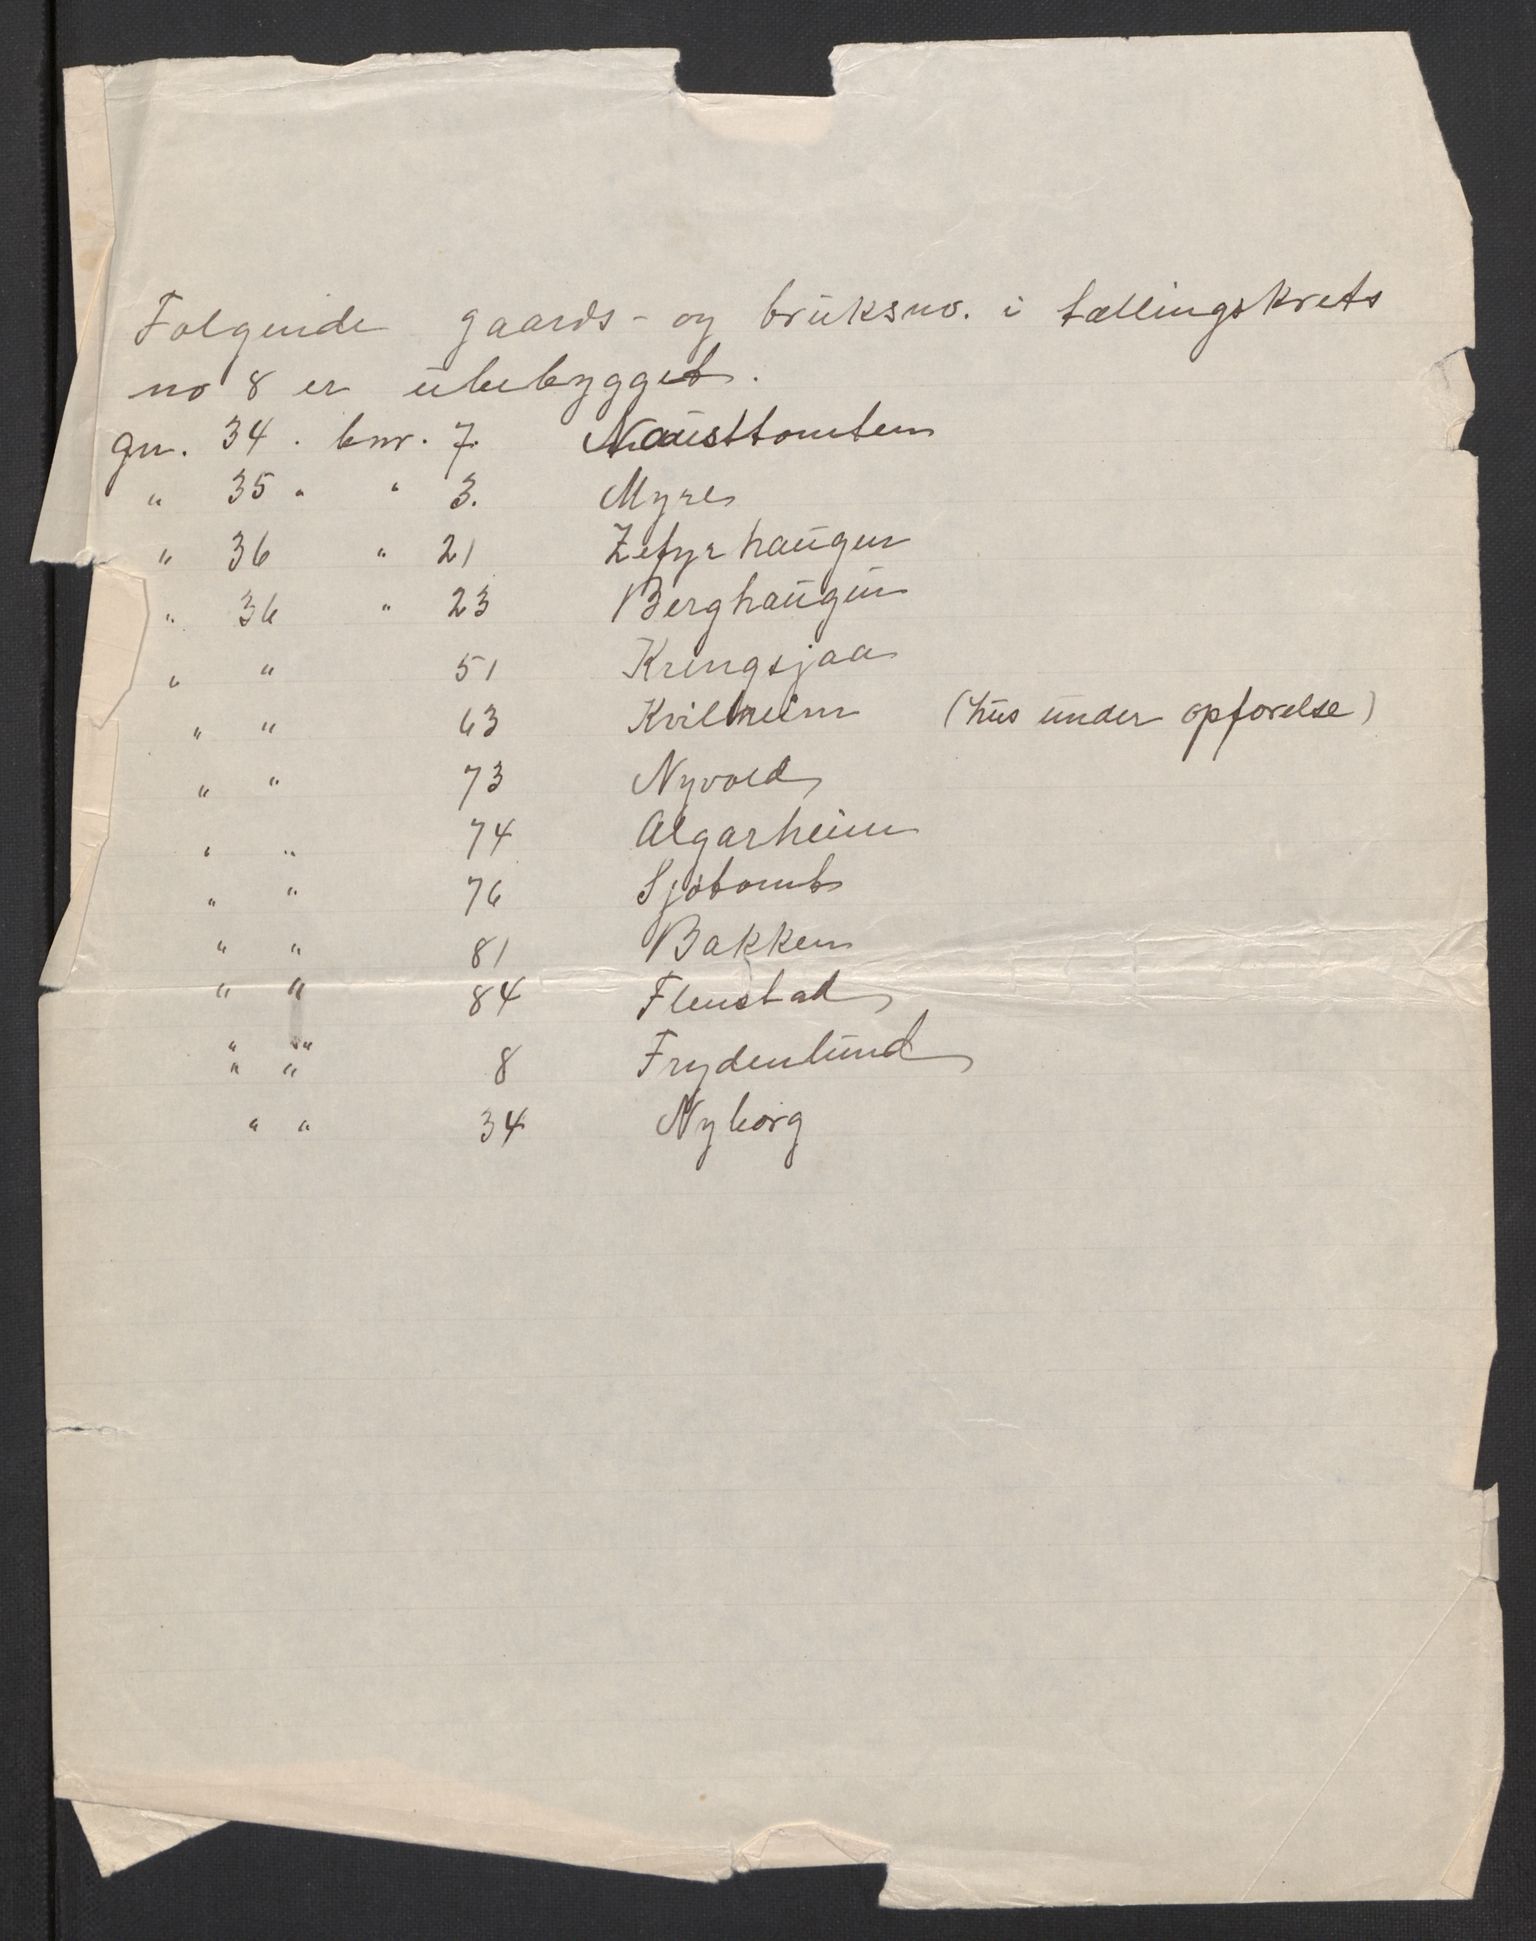 Følgende gaards- og bruksno. i tællingskrets
no 8 er ubebygget.
gn. 34. bnr. 7. Nausttomten
" 35 " " 3. Myre
" 36 " 21 Zefyrhaugen
" 36 " 23 Berghaugen
" " 51 Kringsjaa
" " 63 Kvilheim (hus under opførelse)
" " 73 Nyvold
" " 74 Algarheim
" " 76 Sjøtomt
" " 81 Bakken
" " 84 Flenstad
" "
" " 8 Frydenlund
" " 34 Nyborg